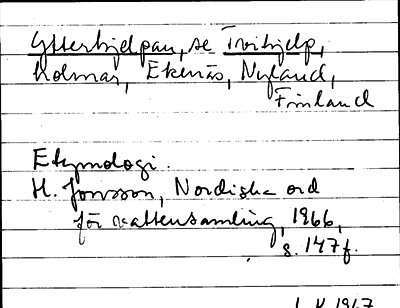 Ytterhjelpan, se Tvihjelp,
Holmar, Ekenäs, Nyland,
Finland
Etymologi.
H. Jonsson, Nordiska ord
för vattensamling, 1966,
s. 147f.
1967